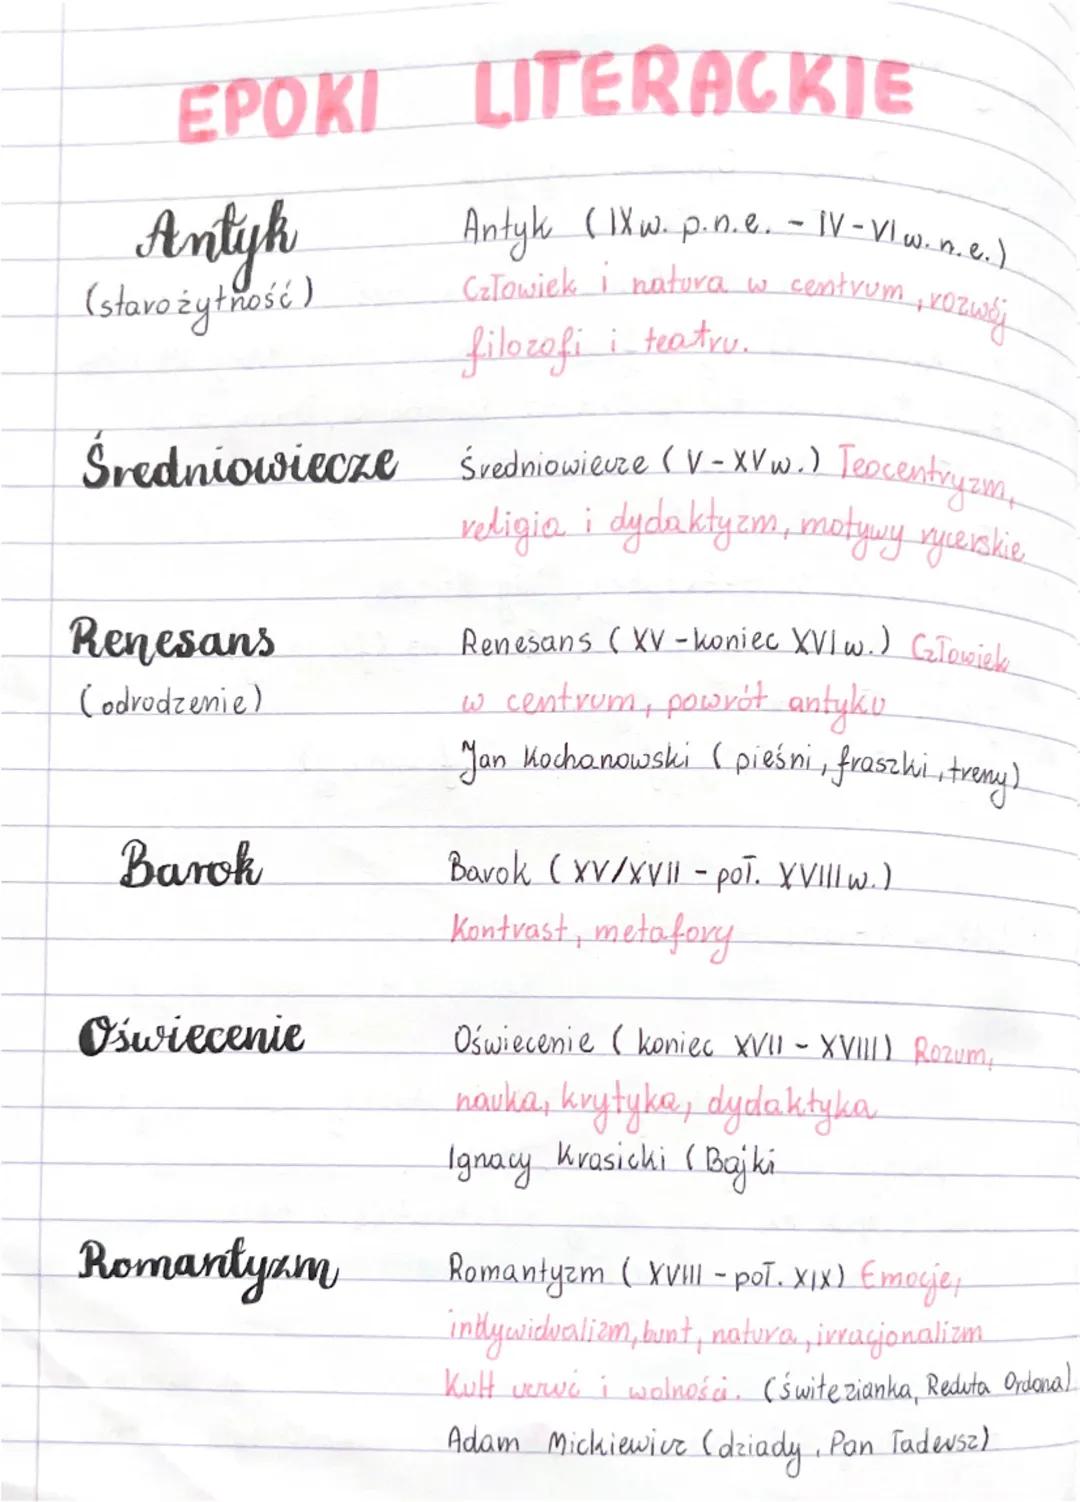 EPOKI LITERACKIE
Antyk
(starożytność)
Antyk (IX w. p.n.e. - IV-VI w. n.e.)
Człowiek i natura w centrum, rozwój
filozofi i teatru.
Średniowiecze
Średniowiecze (V-XV w.) Teocentryzm,
religia i dydaktyzm, motywy rycerskie
Renesans
(odrodzenie)
Renesans (XV-koniec XVI w.) Człowiek
w centrum, powrót antyku
Jan Kochanowski (pieśni, fraszki, treny)
Barok
Barok (XV/XVII - poł. XVIII w.)
Kontrast, metafory
Oświecenie
Oświecenie (koniec XVII - XVIII) Rozum,
nauka, krytyka, dydaktyka
Ignacy Krasicki (Bajki
Romantyzm
Romantyzm (XVIII - poł. XIX) Emocje,
indywidualizm, bunt, natura, irracjonalizm
Kult uczuć i wolności. (świtezianka, Reduta Ordona)
Adam Mickiewicz (dziady, Pan Tadeusz)